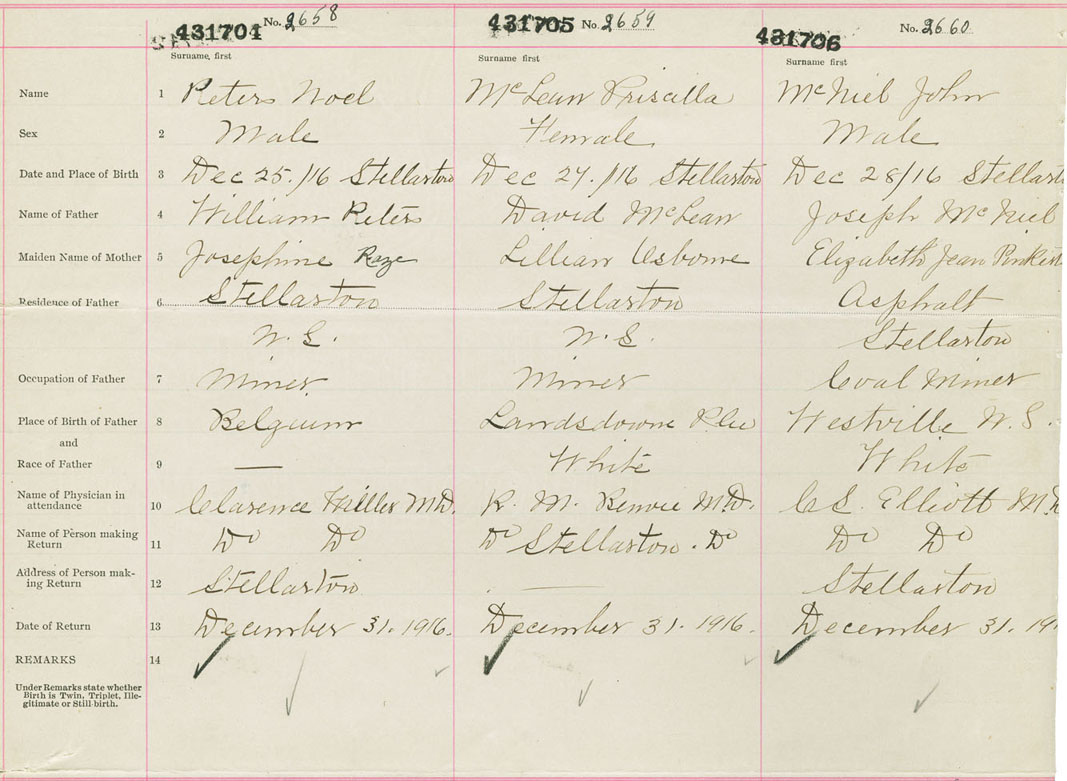 431704 No. 2658 431705 No. 2659 431706 No. 2660
Surname, first Surname first Surname first
Name 1 Peters Noel McLean Priscilla McNiel John
Sex 2 Male Female Male
Date and Place of Birth 3 Dec 25./16 Stellarton Dec 27./16 Stellarton Dec 28/16 Stellart
Name of Father 4 William Peters David McLean Joseph McNiel
Maiden Name of Mother 5 Josephine Lillian Osborne Elizabeth Jean
Residence of Father 6 Stellarton Stellarton Asphalt
N.S. N.S. Stellarton
Occupation of Father 7 Miner Miner Coal Miner
Place of Birth of Father 8 Belgium Landsdowne Westville N.S.
and
Race of Father 9 — White White
Name of Physician in
attendance 10 Clarence Miller M.D. R. M. Benvie M.D. C S. Elliott M.D
Name of Person making
Return 11 Do Do Do Stellarton. Do Do Do
Address of Person mak-
ing Return 12 Stellarton — Stellarton
Date of Return 13 December 31. 1916. December 31. 1916. December 31. 19
REMARKS 14
Under Remarks state whether
Birth is Twin, Triplet, Ille-
gitimate or Still-birth.